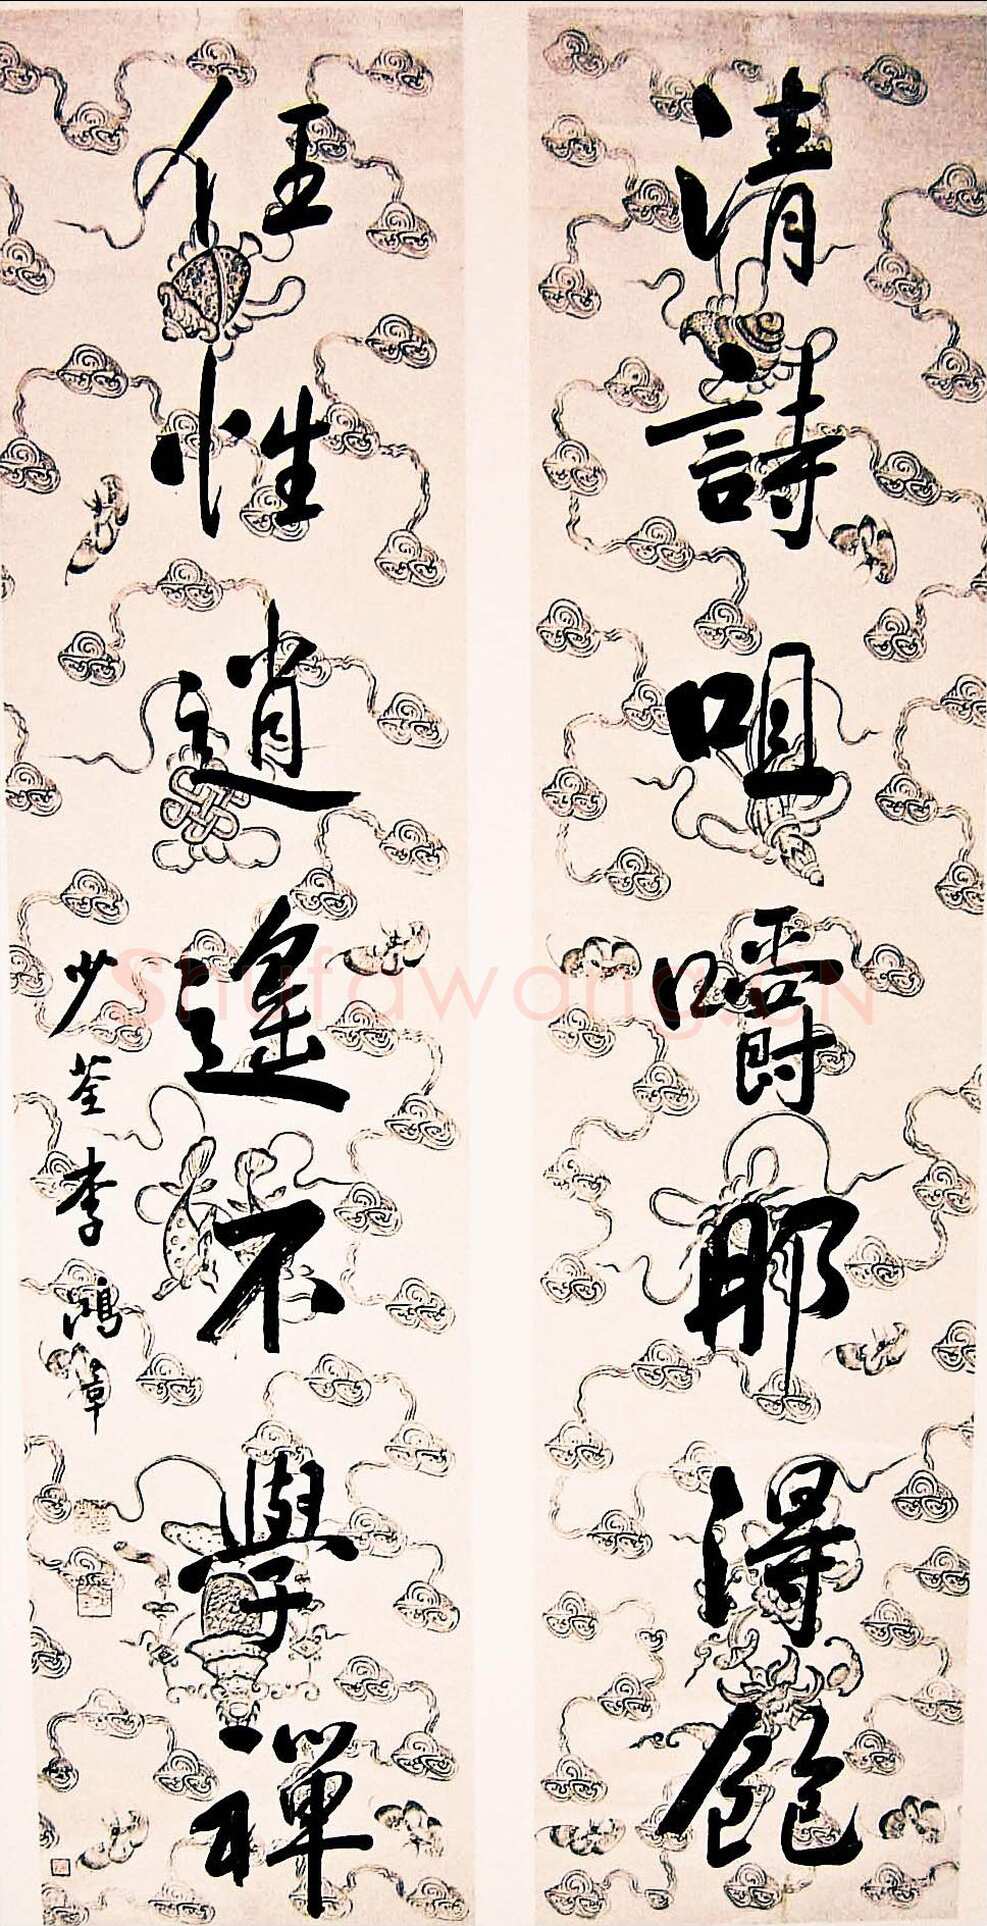 清詩咀嚼那得飽
任性逍遙不學禪
少荃李鴻章
Shufawang.CN